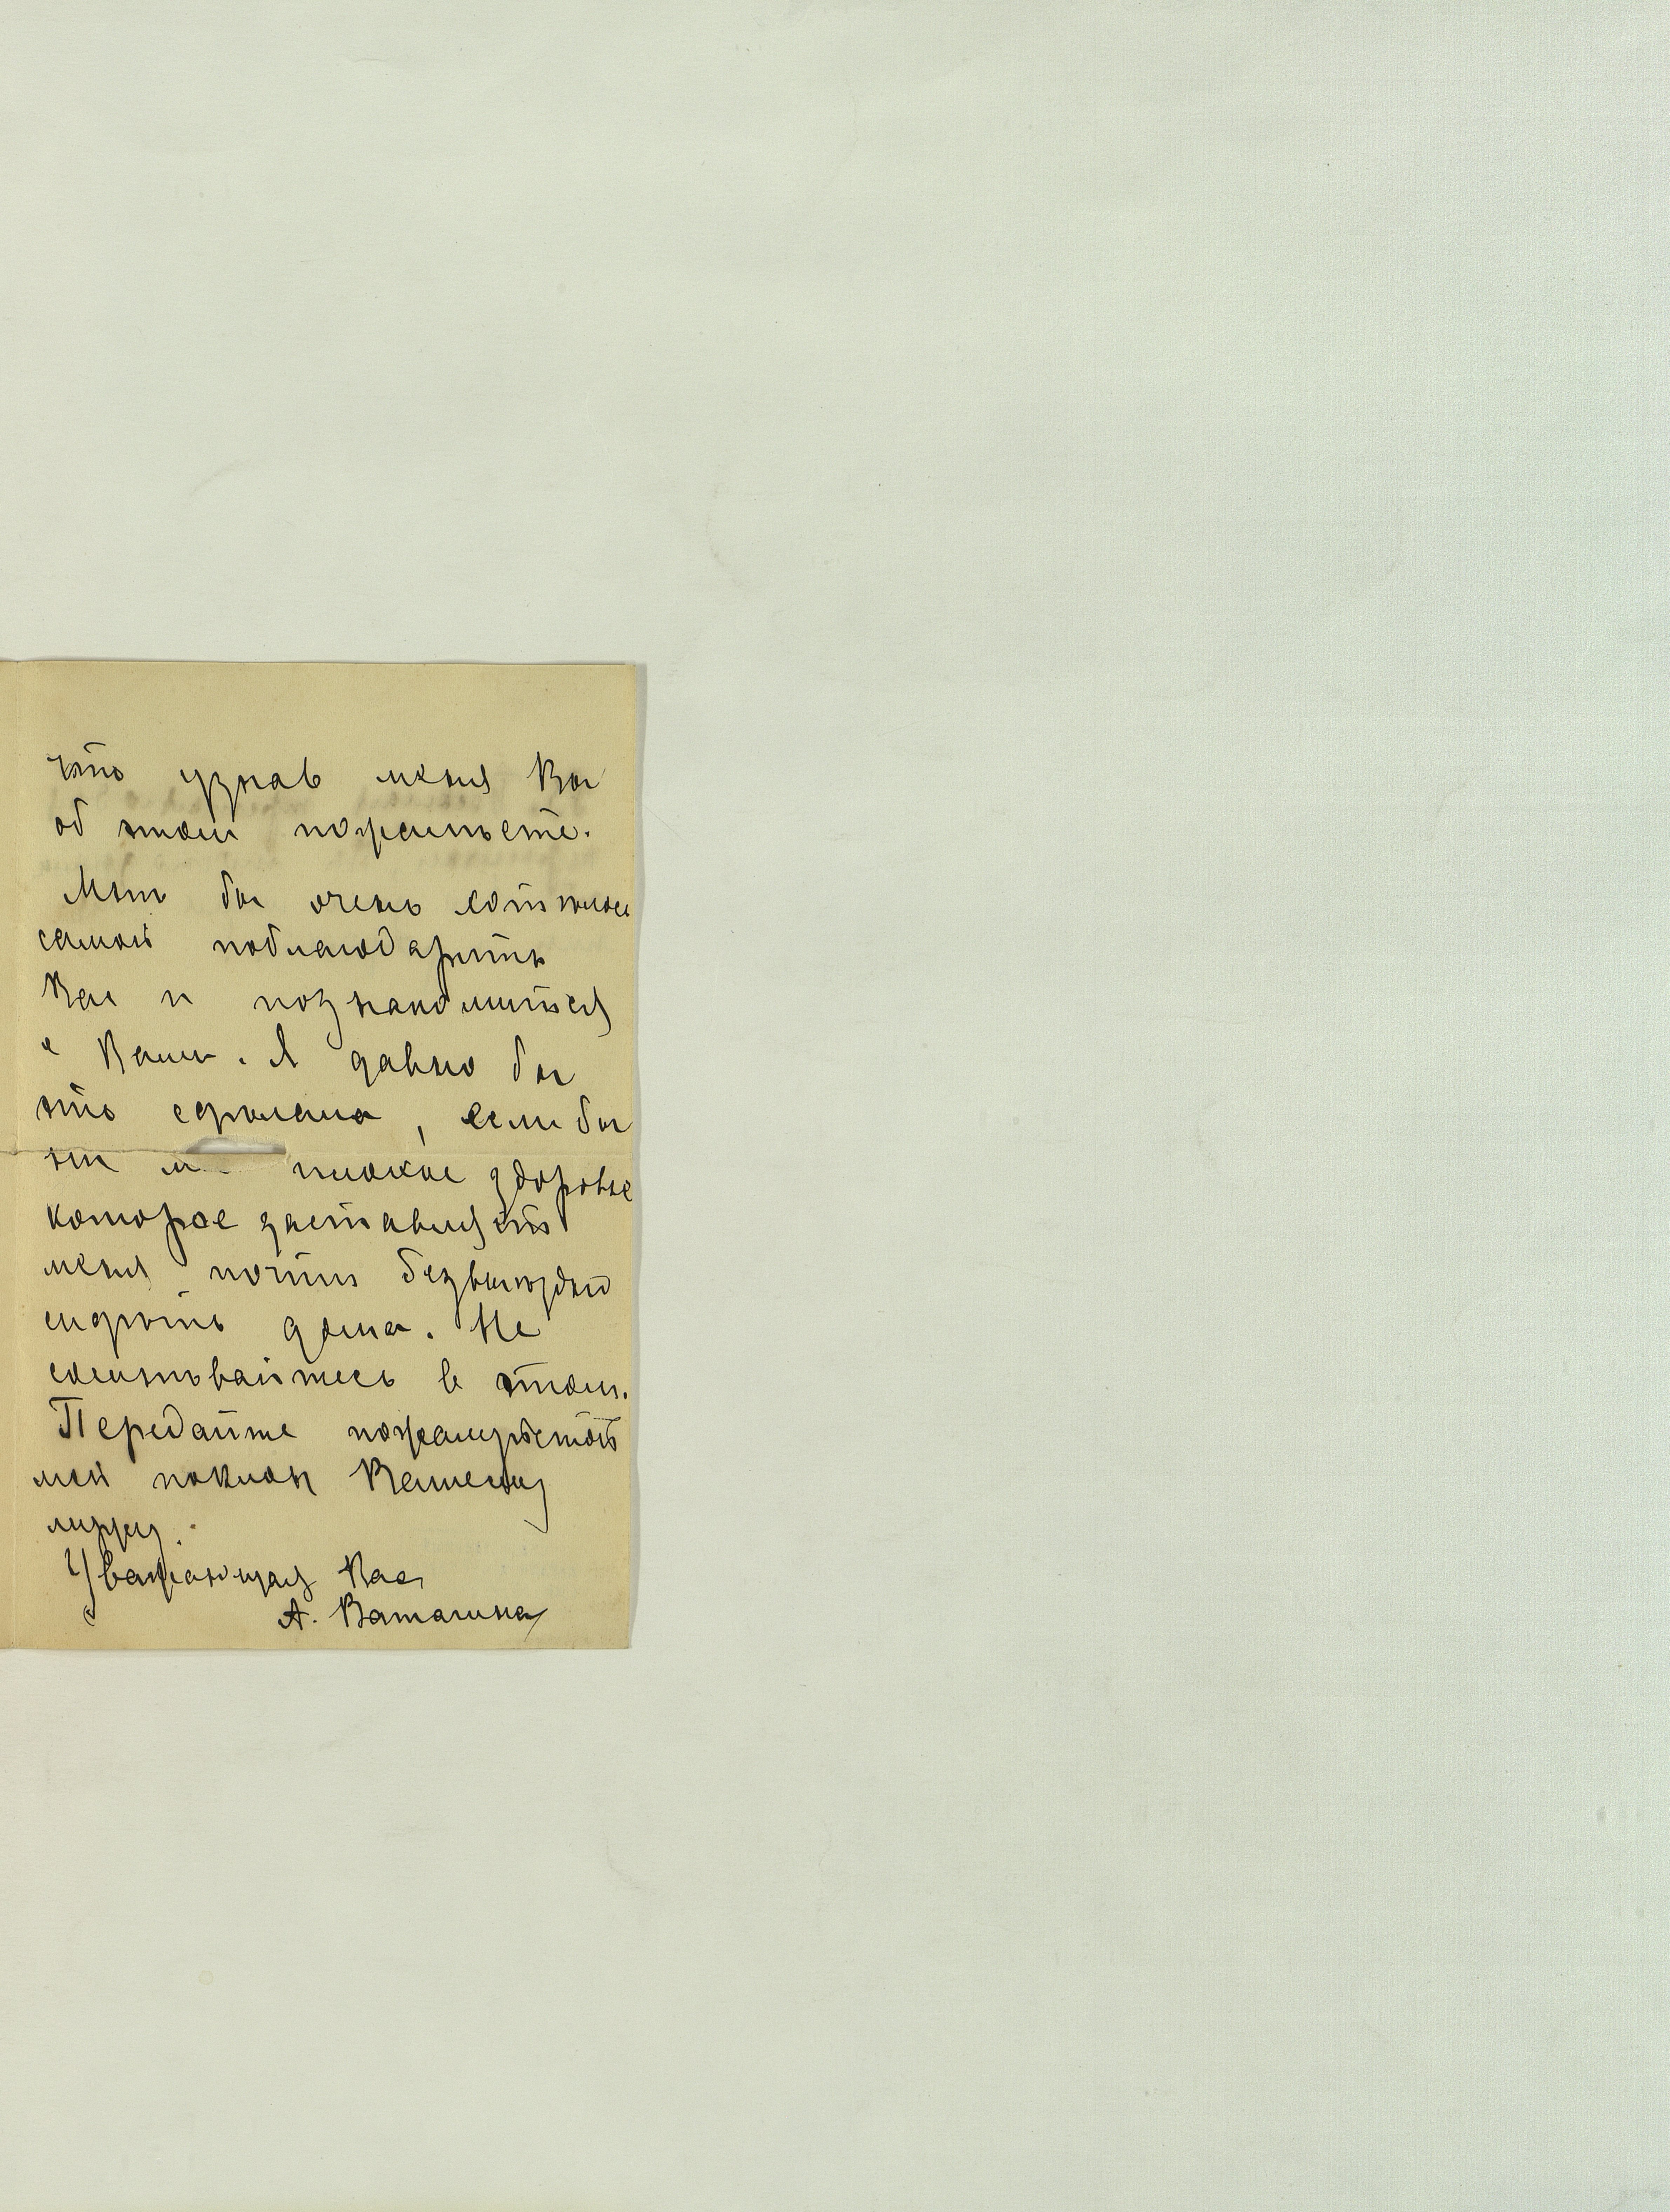 что узнав меня Вы
об этом пожалеете.
Мнѣ бы очень хотѣлось
самой поблагодарить
Вас и познакомиться
с Вами. Я давно бы
это сделала, если бы
не плохое здоровье
которое заставляет
меня почти безвыходно
сидѣть дома. Не
сомнѣвайтесь в этом.
Передайте пожалуйста
мой поклон Вашему
мужу.
Уважающая Вас
А. Ватагина